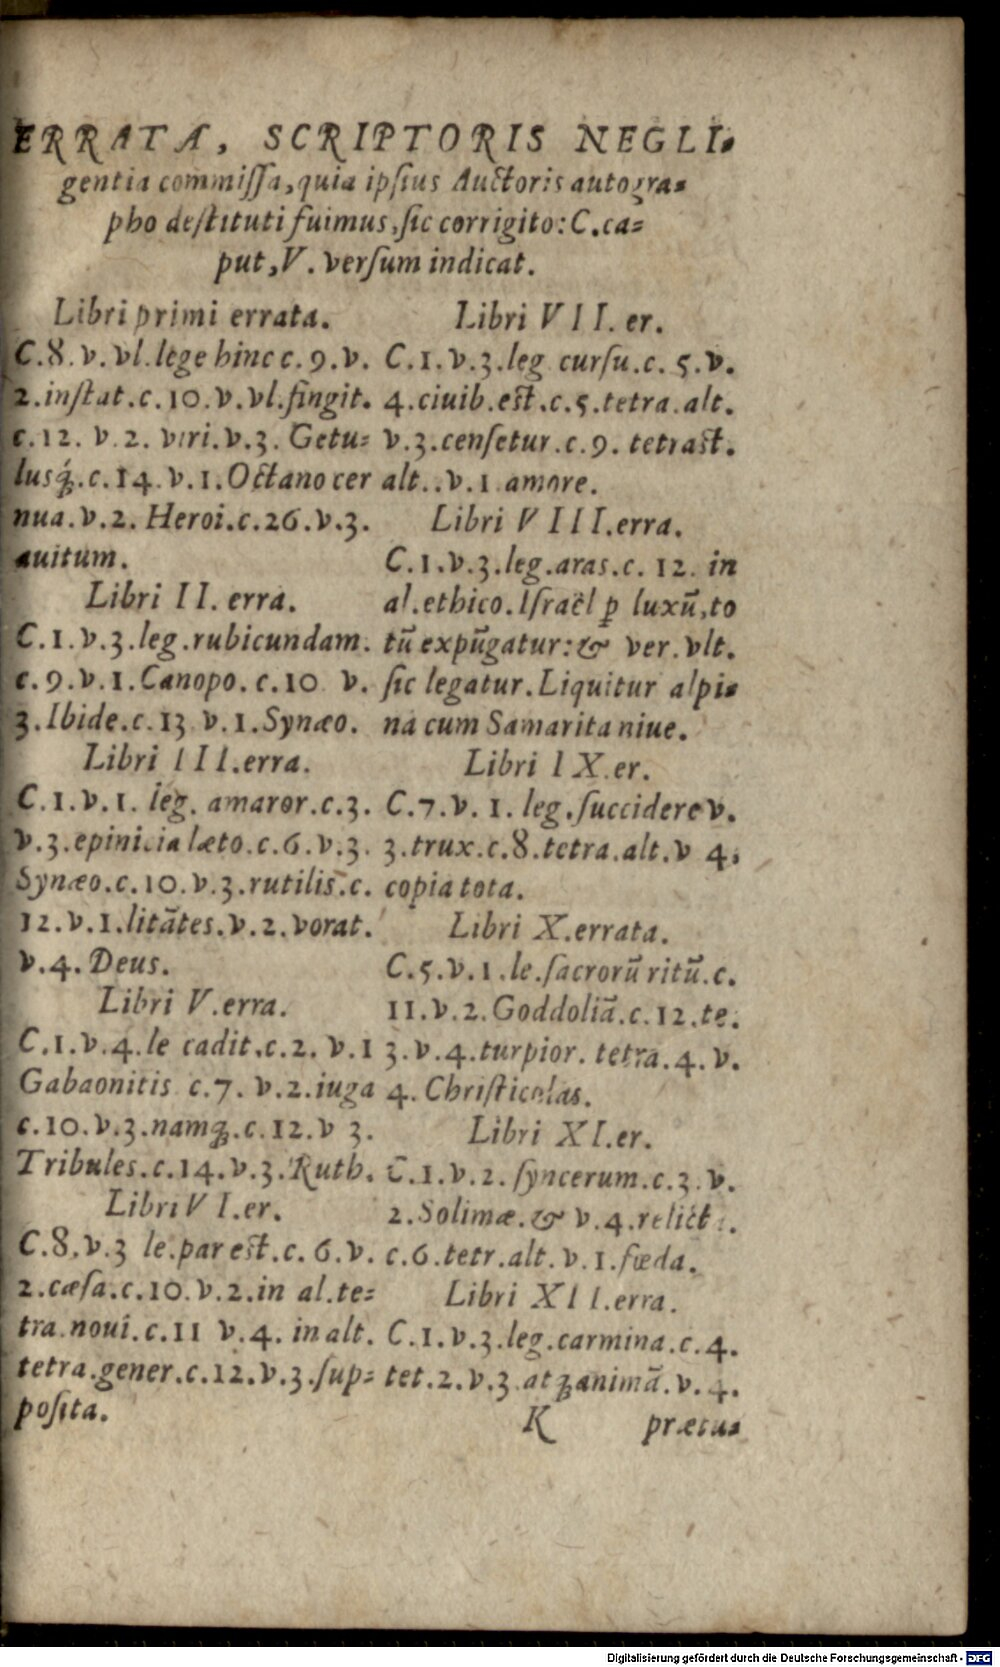 ERRATA, SCRIPTORIS NEGLI-
gentia commissa, quia ipsius Auctoris autogra-
pho destituti fuimus, sic corrigito: C. ca-
put, V. versum indicat.
Libri primi errata.
C.8.v.vl.lege hinc c.9.v.
2.instat.c.10.v.vl.fingit.
c.12.v.2.viri.v.3.Getu-
lusq́.c.14.v.1.Octano cer
nua.v.2.Heroi.c.26.v.3.
auitum.
Libri II. erra.
C.1.v.3.leg.rubicundam.
c.9.v.1.Canopo.c.10 v.
3.Ibide.c.13 v.1.Synæo.
Libri III.erra.
C.1.v.1. leg. amaror.c.3.
v.3.epinicia læto.c.6.v.3.
Synæo.c.10.v.3.rutilis.c.
12.v.1.litātes.v.2.vorat.
v.4. Deus.
Libri V.erra.
C.1.v.4.le cadit.c.2. v.1
Gabaonitis c.7. v.2.iuga
c.10.v.3.namq.c.12.v 3.
Tribules.c.14.v.3.Ruth.
Libri VI.er.
C.8.v.3 le.par est.c.6.v.
2.cæsa.c.10.v.2.in al.te-
tra.noui.c.11 v.4. in alt.
tetra.gener.c.12.v.3.sup-
posita.
Libri VII. er.
C.1.v.3.leg cursu.c. 5.v.
4.ciuib.est.c.5.tetra.alt.
v.3.censetur.c.9. tetrast.
alt..v.1 amore.
Libri VIII.erra.
C.1.v.3.leg.aras.c. 12. in
al.ethico.Israël ꝑ luxū,to
tū expūgatur:& ver.vlt.
sic legatur.Liquitur alpi-
na cum Samarita niue.
Libri IX.er.
C.7.v. 1. leg.succidere v.
3.trux.c.8.tetra.alt.v 4.
copia tota.
Libri X.errata.
C.5.v.1.le.sacrorū ritū.c.
11.v.2.Goddoliā.c.12.te.
3.v.4.turpior. tetra.4. v.
4. Christicolas.
Libri XI.er.
C.1.v.2. syncerum.c.3.v.
2.Solimæ.& v.4.relict
c.6.tetr.alt.v.1.fœda.
Libri XII.erra.
C.1.v.3.leg.carmina.c.4.
tet.2.v.3.atq animā.v.4.
K prætu-
Digitalisierung gefördert durch die Deutsche Forschungsgemeinschaft - DFG